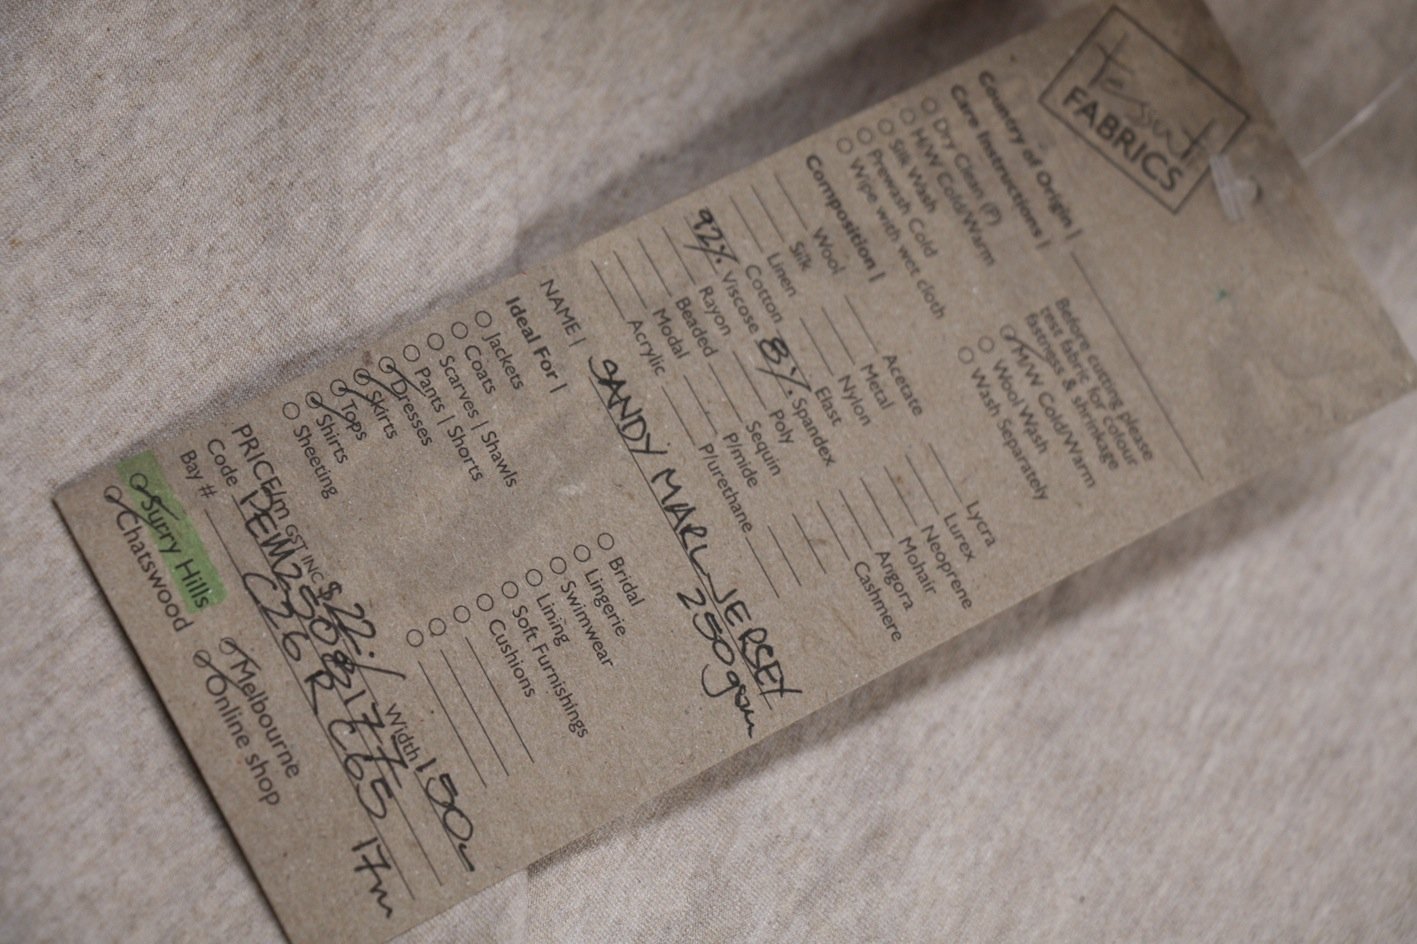 Tessuti
FABRICS
Country of Origin |
Care Instructions |
Dry Clean (P)
H/W Cold/Warm
Silk Wash
Prewash Cold
Wipe with wet cloth
Before cutting please
test fabric for colour
fastness & shrinkage
M/W Cold/Warm
Wool Wash
Wash Separately
Composition |
Wool Acetate Lycra
Silk Metal Lurex
Linen Nylon Neoprene
Cotton Elast Mohair
92% Viscose 8% Spandex Angora
Rayon Poly Cashmere
Beaded Sequin
Modal P/mide
Acrylic P/urethane
NAME | SANDY MARL JERSEY
250gsm
Ideal For |
Jackets Bridal
Coats Lingerie
Scarves | Shawls Swimwear
Pants | Shorts Lining
Dresses Soft Furnishings
Skirts Cushions
Tops
Shirts
Sheeting
PRICE/m GST INC $ 22:/ Width 150
Code
Bay # C26 R C65 17m
Surry Hills Melbourne
Chatswood Online shop